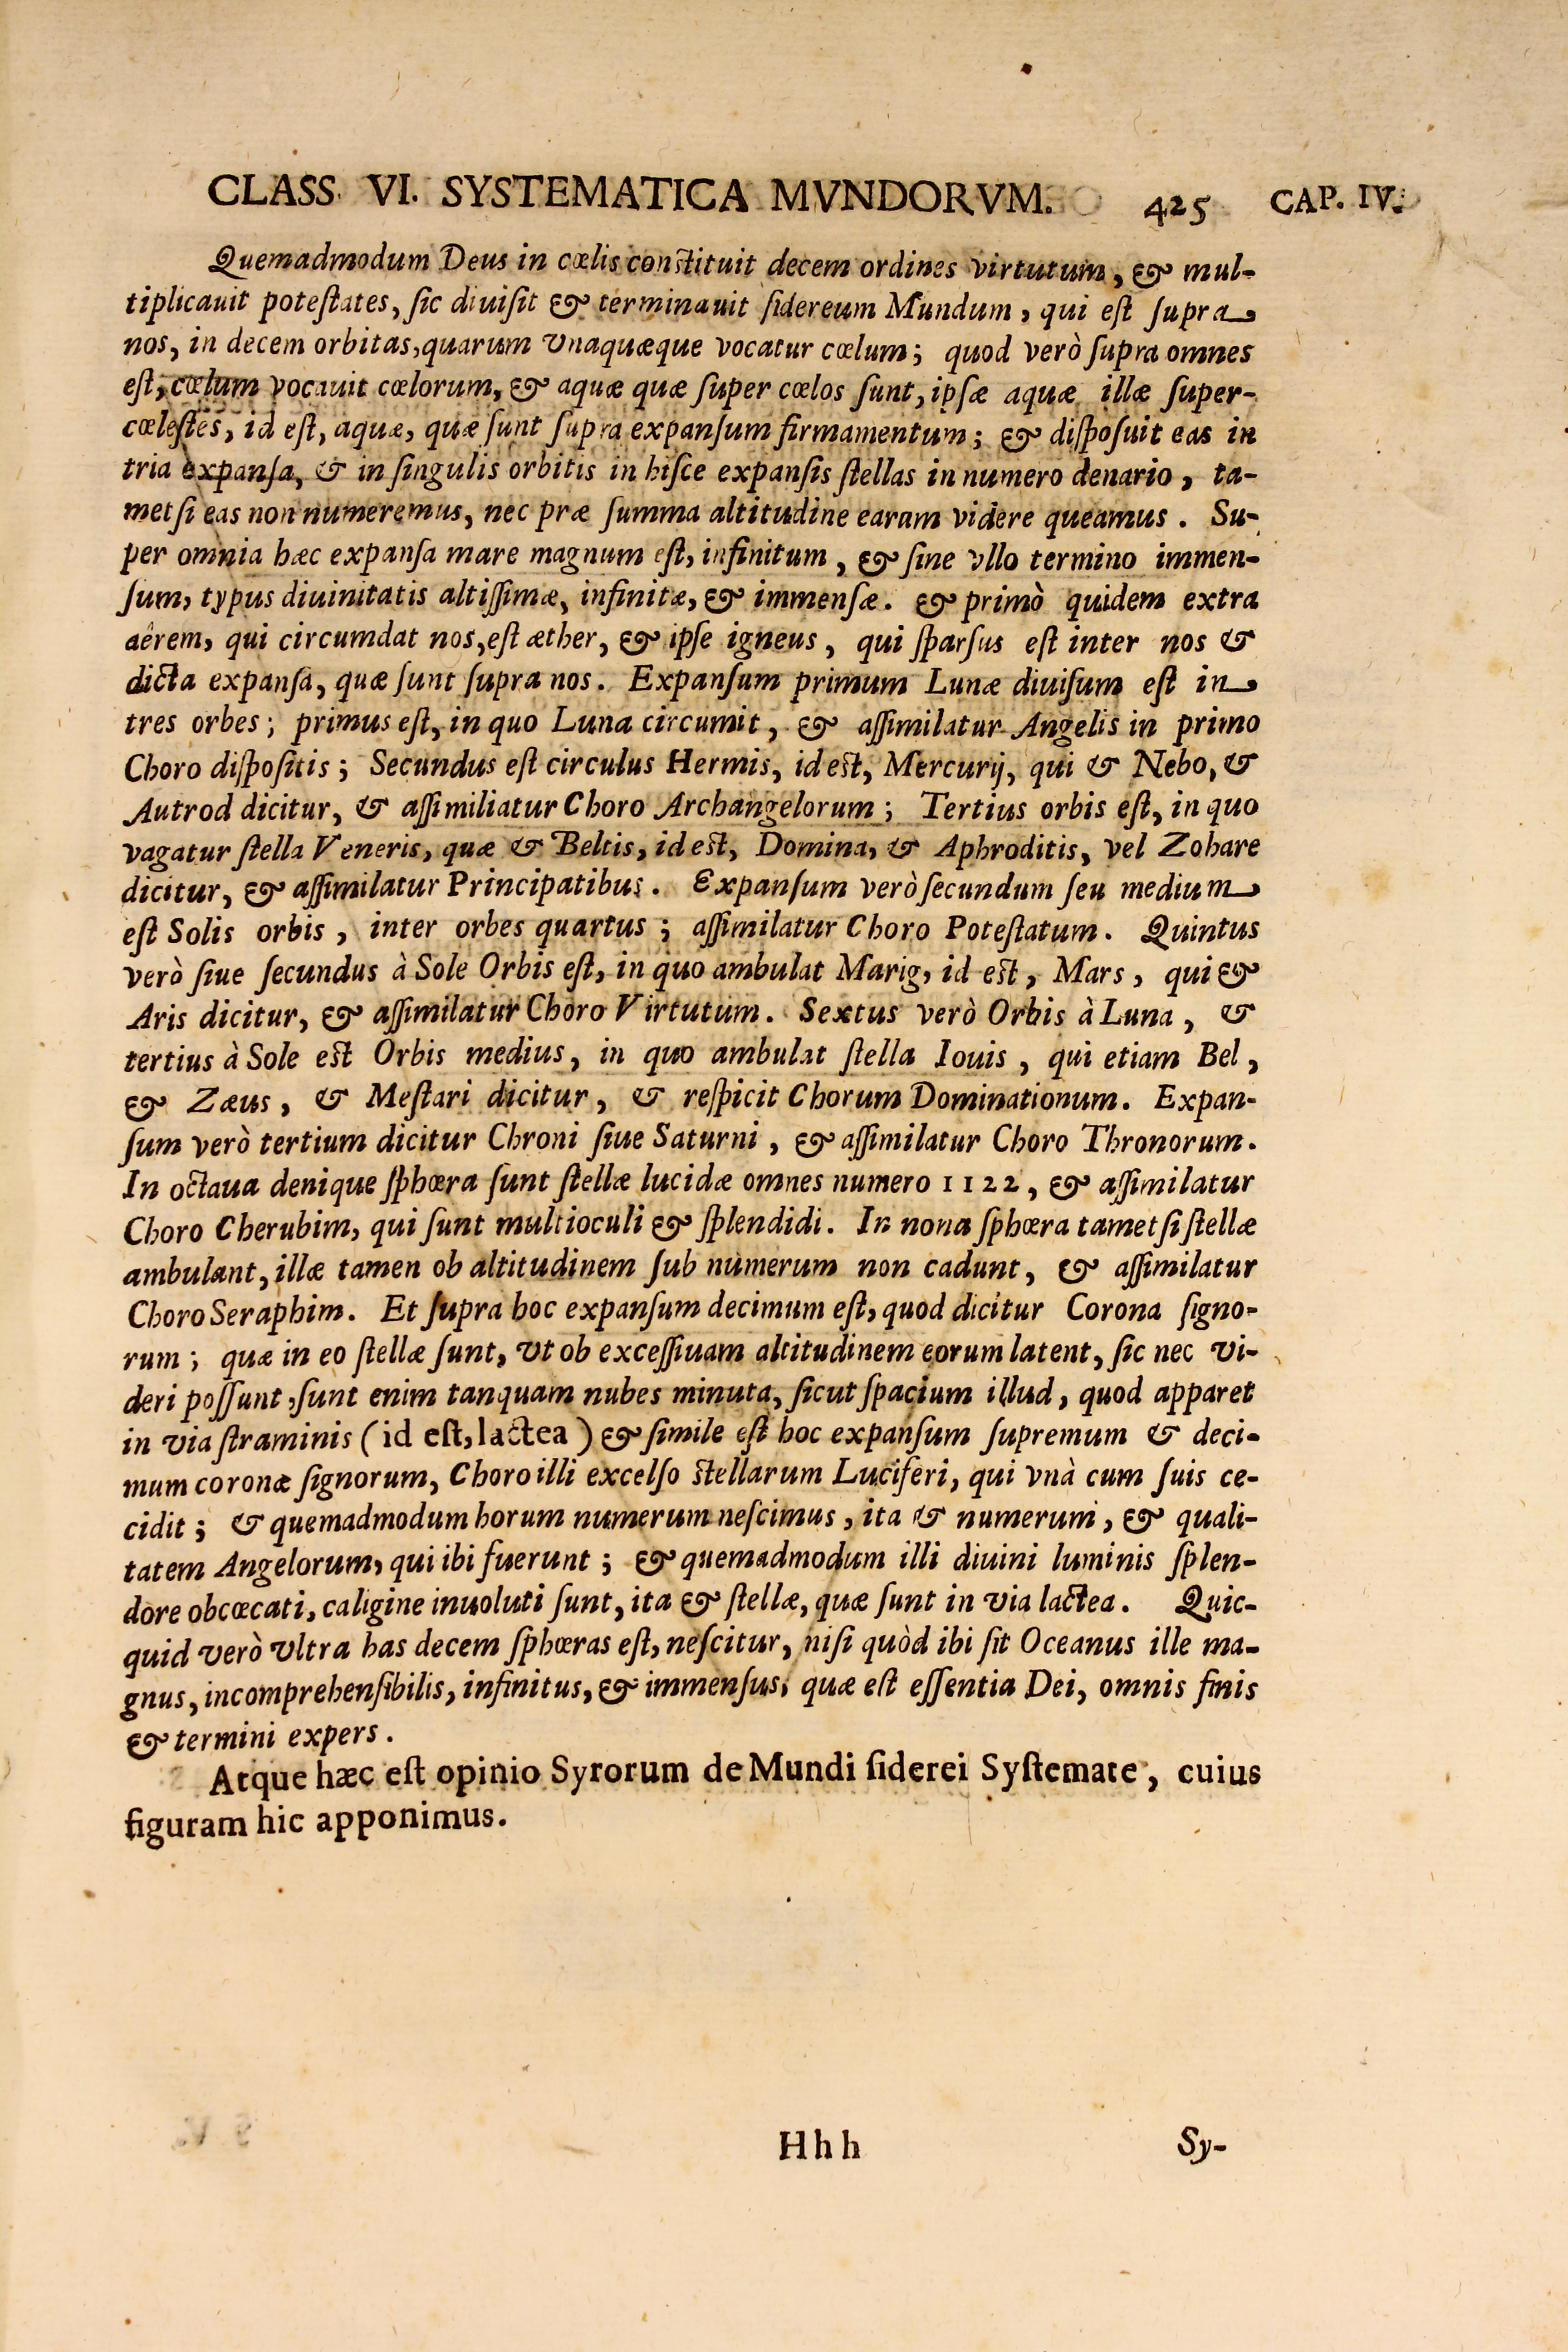 CLASS. VI. SYSTEMATICA MVNDORVM. 425 CAP. IV.
Quemadmodum Deus in cœlis constituit decem ordines virtutum, & mul-
tiplicauit poteſtates, ſic diuiſit & terminauit ſidereum Mundum, qui eſt ſupra
nos, in decem orbitas, quarum vnaquæque vocatur cœlum; quod verò ſupra omnes
eſt, cœlum vocauit cœlorum, & aquæ quæ ſuper cœlos ſunt, ipſæ aquæ illæ ſuper-
cœleſtes, id eſt, aquæ, quæ ſunt ſupra expanſum firmamentum; & diſpoſuit eas in
tria expanſa, & in ſingulis orbitis in hiſce expanſis ſtellas in numero denario, ta-
metſi eas non numeremus, nec præ ſumma altitudine earum videre queamus. Su-
per omnia hæc expanſa mare magnum eſt, infinitum, & ſine vllo termino immen-
ſum, typus diuinitatis altiſſimæ, infinitæ, & immenſæ. & primò quidem extra
aêrem, qui circumdat nos, eſt æther, & ipſe igneus, qui ſparſus eſt inter nos &
dicta expanſa, quæ ſunt ſupra nos. Expanſum primum Lunæ diuiſum eſt in
tres orbes; primus eſt, in quo Luna circumit, & aſſimilatur Angelis in primo
Choro diſpoſitis; Secundus eſt circulus Hermis, id est, Mercurij, qui & Nebo, &
Autrod dicitur, & aſſimiliatur Choro Archangelorum; Tertius orbis eſt, in quo
vagatur ſtella Veneris, quæ & Beltis, id est, Domina, & Aphroditis, vel Zohare
dicitur, & aſſimilatur Principatibus. Expanſum verò ſecundum ſeu medium
eſt Solis orbis, inter orbes quartus; aſſimilatur Choro Poteſtatum. Quintus
verò ſiue ſecundus à Sole Orbis eſt, in quo ambulat Marig, id est, Mars, qui &
Aris dicitur, & aſſimilatur Choro Virtutum. Sextus verò Orbis à Luna, &
tertius à Sole est Orbis medius, in quo ambulat ſtella Iouis, qui etiam Bel,
& Zæus, & Meſtari dicitur, & reſpicit Chorum Dominationum. Expan-
ſum verò tertium dicitur Chroni ſiue Saturni, & aſſimilatur Choro Thronorum.
In octaua denique ſphœra ſunt ſtellæ lucidæ omnes numero 1122, & aſſimilatur
Choro Cherubim, qui ſunt multioculi & ſplendidi. In nona ſphœra tametſi ſtellæ
ambulant, illæ tamen ob altitudinem ſub numerum non cadunt, & aſſimilatur
Choro Seraphim. Et ſupra hoc expanſum decimum eſt, quod dicitur Corona ſigno-
rum; quæ in eo ſtellæ ſunt, vt ob exceſſiuam altitudinem eorum latent, ſic nec vi-
deri poſſunt, ſunt enim tanquam nubes minuta, ſicut ſpacium illud, quod apparet
in via ſtraminis (id eſt, lactea) & ſimile eſt hoc expanſum ſupremum & deci-
mum coronæ ſignorum, Choro illi excelſo stellarum Luciferi, qui vnà cum ſuis ce-
cidit; & quemadmodum horum numerum neſcimus, ita & numerum, & quali-
tatem Angelorum, qui ibi fuerunt; & quemadmodum illi diuini luminis ſplen-
dore obcœcati, caligine inuoluti ſunt, ita & ſtellæ, quæ ſunt in via lactea. Quic-
quid verò vltra has decem ſphœras eſt, neſcitur, niſi quòd ibi ſit Oceanus ille ma-
gnus, incomprehenſibilis, infinitus, & immenſus, quæ eſt eſſentia Dei, omnis finis
& termini expers.
Atque hæc eſt opinio Syrorum de Mundi ſiderei Syſtemate, cuius
figuram hic apponimus.
Hhh Sy-